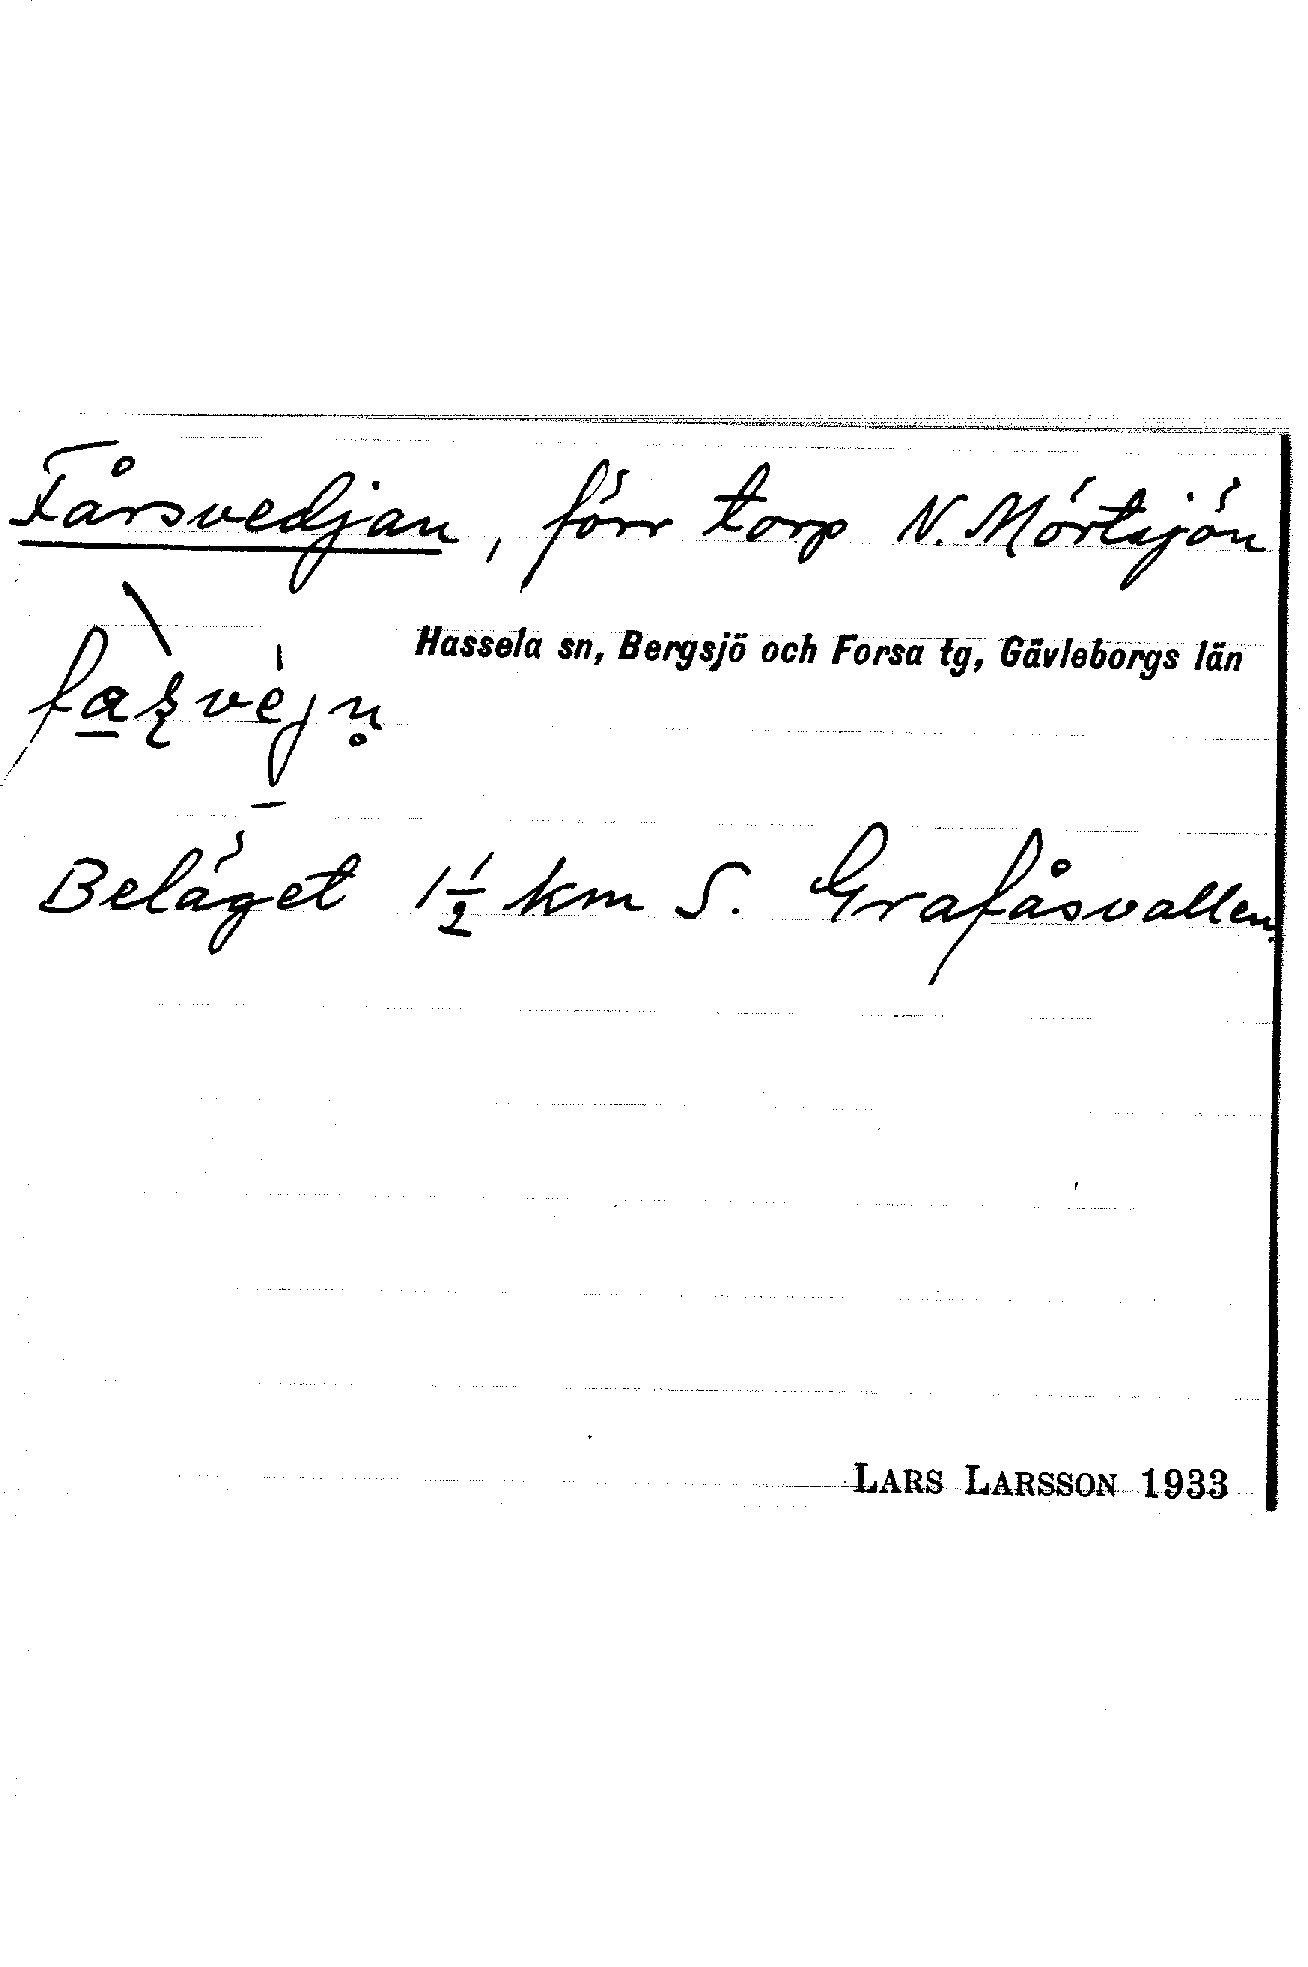 Fårsvedjan, förr torp N. Mörtsjön
Hassela sn, Bergsjö och Forsa tg, Gävleborgs län
Beläget 1½ km S. Grafåsvallen.
LARS LARSSON 1933